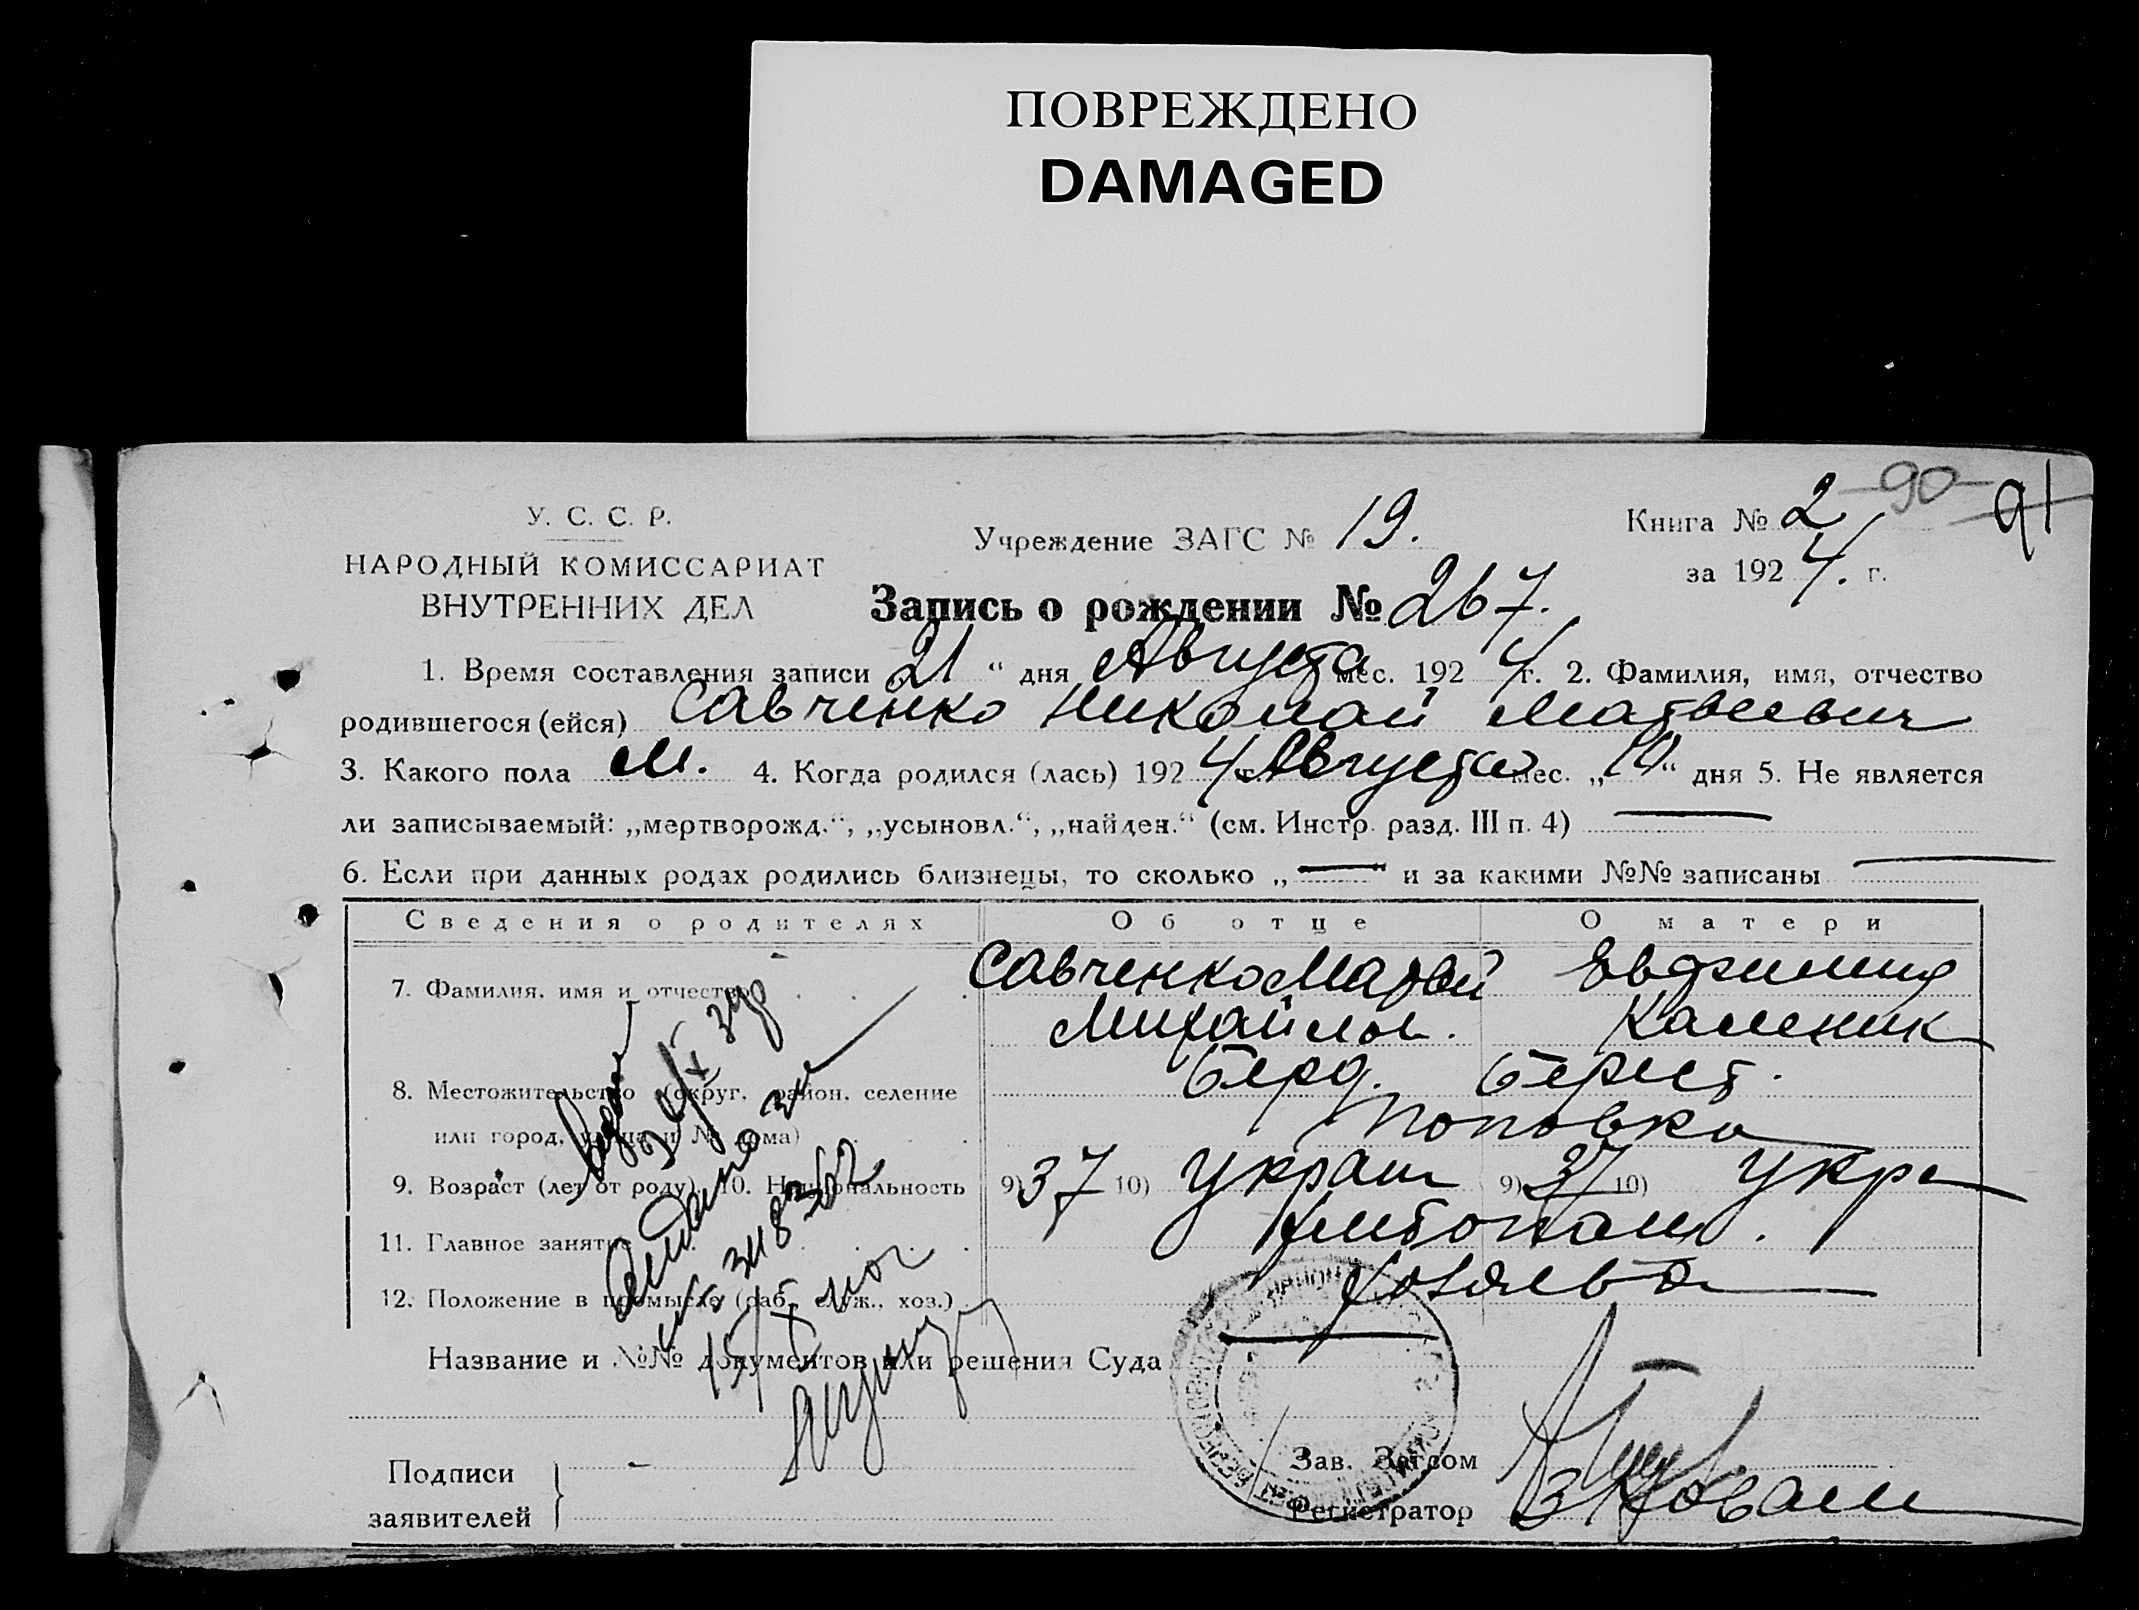 ПОВРЕЖДЕНО
DAMAGED
У. С. С. Р.
НАРОДНЫЙ КОМИССАРИАТ
ВНУТРЕННИХ ДЕЛ
Учреждение ЗАГС № 19.
Книга № 2
90
91
за 1924. г.
Запись о рождении № 267.
1. Время составления записи 21 “ дня Августа мес. 1924 г. 2. Фамилия, имя, отчество
родившегося (ейся) Савченко Николай Матвеевич
3. Какого пола М. 4. Когда родился (лась) 1924 г. Августа мес. „10“ дня 5. Не является
ли записываемый: „мертворожд.“, „усыновл.“, „найден.“ (см. Инстр. разд. III п. 4)
6. Если при данных родах родились близнецы, то сколько „ “ и за какими №№ записаны
Сведения о родителях Об отце О матери
7. Фамилия, имя и отчество Савченко Матвей Евфимия
Михайлов. Каменик
8. Местожительство (округ, район, селение Берд. Берест.
или город, улица и № дома) Поповка
9. Возраст (лет от роду) 10. Национальность 9) 37 10) Украин 9) 37 10) Укра
11. Главное занятие Хлебопаш.
12. Положение в промысле (раб., служ., хоз.) Хозяева
Название и №№ документов или решения Суда
Подписи
заявителей
Зав. Загсом
Регистратор